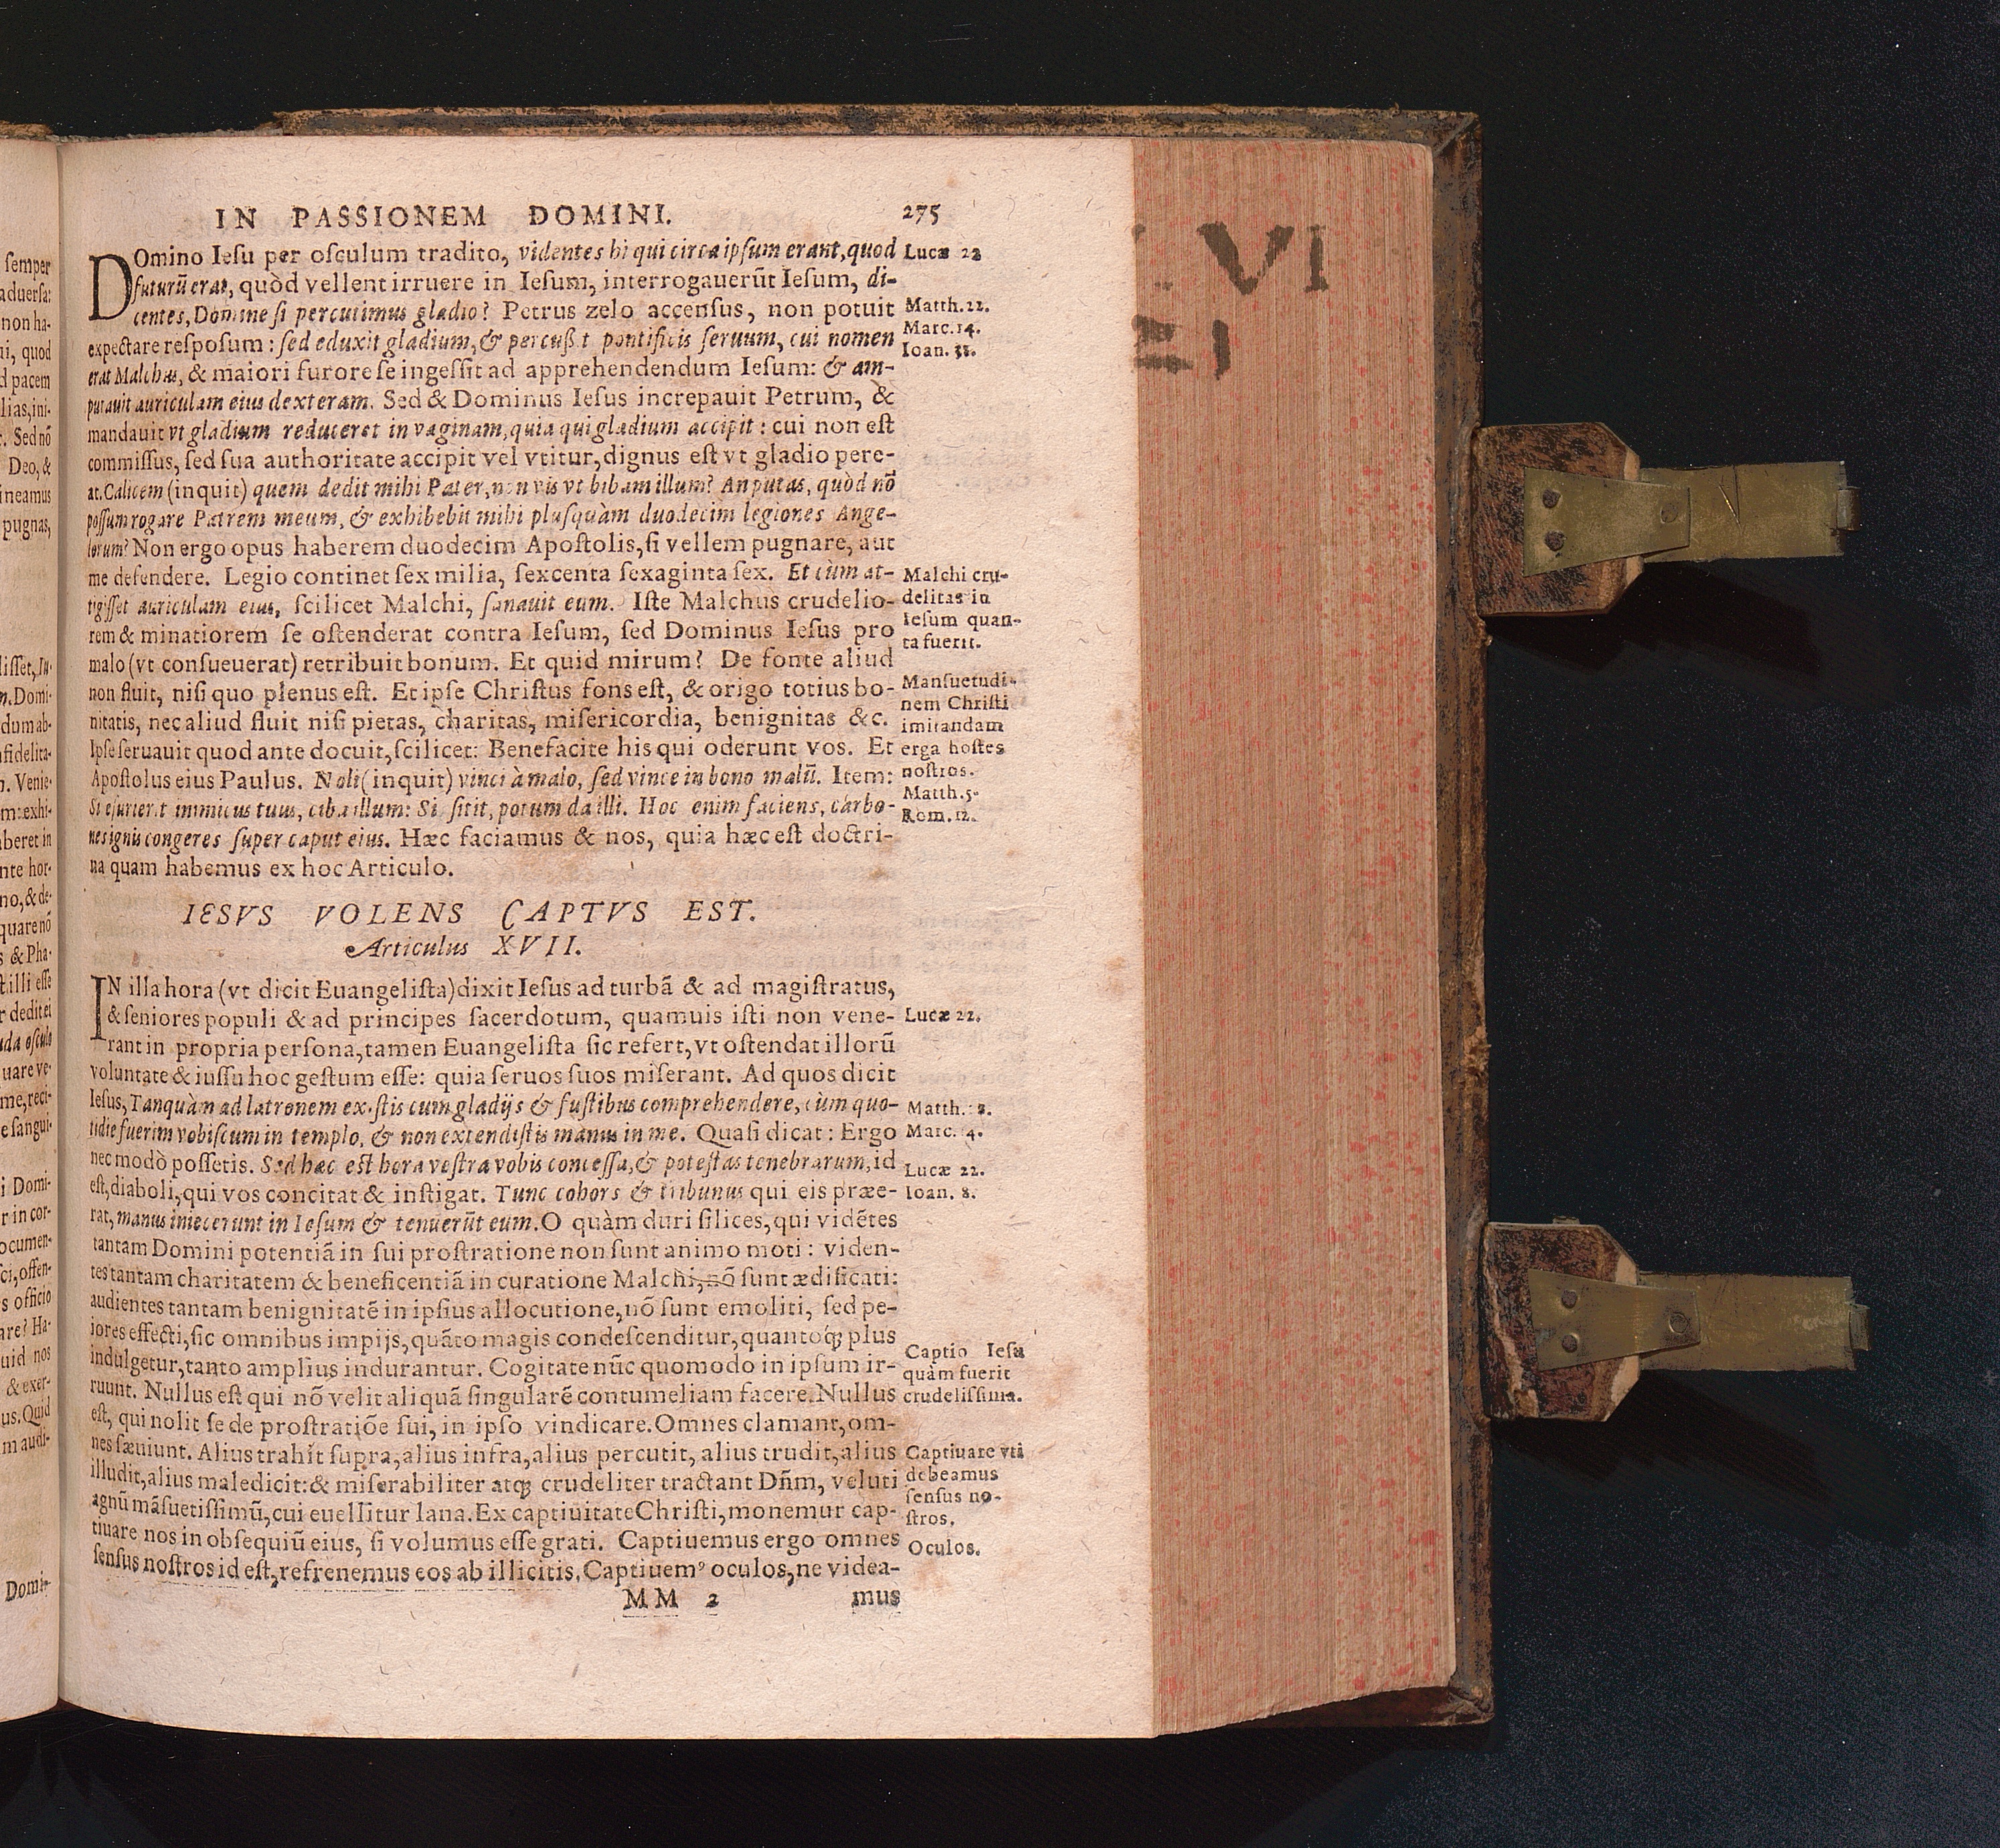 IN PASSIONEM DOMINI. 275
DOmino Iesu per osculum tradito, videntes hi qui circa ipsum erant, quod
futurũ erat, quòd vellent irruere in Iesum, interrogauerũt Iesum, di-
centes, Domine si percutimus gladio? Petrus zelo accensus, non potuit
expectare resposum: sed eduxit gladium, & percußit pontificis seruum, cui nomen
erat Malchus, & maiori furore se ingessit ad apprehendendum Iesum: & am-
putauit auriculam eius dexteram. Sed & Dominus Iesus increpauit Petrum, &
mandauit vt gladium reduceret in vaginam, quia qui gladium accipit: cui non est
commissus, sed sua authoritate accipit vel vtitur, dignus est vt gladio pere-
at. Calicem (inquit) quem dedit mihi Pater, non vis vt bibam illum? An putas, quòd nõ
possum rogare Patrem meum, & exhibebit mihi plusquàm duodecim legiones Ange-
lorum? Non ergo opus haberem duodecim Apostolis, si vellem pugnare, aut
me defendere. Legio continet sex milia, sexcenta sexaginta sex. Et cùm at-
tigisset auriculam eius, scilicet Malchi, sanauit eum. Iste Malchus crudelio-
rem & minatiorem se ostenderat contra Iesum, sed Dominus Iesus pro
malo (vt consueuerat) retribuit bonum. Et quid mirum? De fonte aliud
non fluit, nisi quo plenus est. Et ipse Christus fons est, & origo totius bo-
nitatis, nec aliud fluit nisi pietas, charitas, misericordia, benignitas &c.
Ipse seruauit quod ante docuit, scilicet: Benefacite his qui oderunt vos. Et
Apostolus eius Paulus. Noli (inquit) vinci à malo, sed vince in bono malũ. Item:
Si esurierit inimicus tuus, ciba illum: Si sitit, potum da illi. Hoc enim faciens, carbo-
nes ignis congeres super caput eius. Hæc faciamus & nos, quia hæc est doctri-
na quam habemus ex hoc Articulo.
Lucæ 22
Matth.22.
Marc.14.
Ioan.
Malchi cru-
delitas in
Iesum quan-
ta fuerit.
Mansuetudi-
nem Christi
imitandam
erga hostes
nostros.
Matth.5.
Rom.12.
IESVS VOLENS CAPTVS EST.
Articulus XVII.
IN illa hora (vt dicit Euangelista) dixit Iesus ad turbã & ad magistratus,
& seniores populi & ad principes sacerdotum, quamuis isti non vene-
rant in propria persona, tamen Euangelista sic refert, vt ostendat illorũ
voluntate & iussu hoc gestum esse: quia seruos suos miserant. Ad quos dicit
Iesus, Tanquàm ad latronem existis cum gladijs & fustibus comprehendere, cùm quo-
tidie fuerim vobiscum in templo, & non extendistis manus in me. Quasi dicat: Ergo
nec modò possetis. Sed hæc est hora vestra vobis concessa, & potestas tenebrarum, id
est, diaboli, qui vos concitat & instigat. Tunc cohors & tribunus qui eis præe-
rat, manus iniecerunt in Iesum & tenuerũt eum. O quàm duri silices, qui vidẽtes
tantam Domini potentiã in sui prostratione non sunt animo moti: viden-
tes tantam charitatem & beneficentiã in curatione Malchi, nõ sunt ædificati:
audientes tantam benignitatẽ in ipsius allocutione, nõ sunt emoliti, sed pe-
iores effecti, sic omnibus impijs, quãto magis condescenditur, quantoq́; plus
indulgetur, tanto amplius indurantur. Cogitate nũc quomodo in ipsum ir-
ruunt. Nullus est qui nõ velit aliquã singularẽ contumeliam facere. Nullus
est, qui nolit se de prostratiõe sui, in ipso vindicare. Omnes clamant, om-
nes sæuiunt. Alius trahit supra, alius infra, alius percutit, alius trudit, alius
illudit, alius maledicit: & miserabiliter atq; crudeliter tractant Dñm, veluti
agnũ mãsuetissimũ, cui euellitur lana. Ex captiuitate Christi, monemur cap-
tiuare nos in obsequiũ eius, si volumus esse grati. Captiuemus ergo omnes
sensus nostros id est, refrenemus eos ab illicitis. Captiuemꝰ oculos, ne videa-
MM 2 mus
Lucæ 22.
Matth.
Marc. 4.
Lucæ 22.
Ioan. 8.
Captio Iesu
quàm fuerit
crudelissima.
Captiuare vti
debeamus
sensus no-
stros.
Oculos.
semper
aduersa:
non ha-
ui, quod
d pacem
lias, ini-
. Sed nõ
Deo, &
ineamus
pugnas,
lisset, In-
n. Domi-
dum ab-
nfidelita-
n. Venie-
m: exhi-
aberet in
nte hor-
no, & de-
quare nõ
s & Pha-
t illi esse
r dedit ei
uda osculo
uare ve-
me, reci-
e sangui-
i Domi-
r in cor-
ocumen-
sci, offen-
s officio
are? Ha-
uid nos
& exer-
us. Quid
m audi-
Domi-
VI